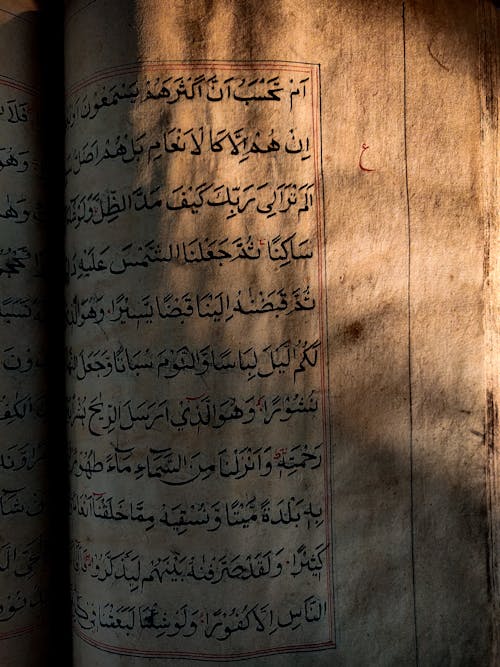 اَمْ تَحْسَبُ اَنَّ اَكْثَرَهُمْ يَسْمَعُوْنَ
اِنْ هُمْ اِلَّا كَالْاَنْعَامِ بَلْ هُمْ اَضَلُّ
ع
اَلَمْ تَرَ اِلٰى رَبِّكَ كَيْفَ مَدَّ الظِّلَّ وَلَوْ
سَاكِنًا ثُمَّ جَعَلْنَا الشَّمْسَ عَلَيْهِ
ثُمَّ قَبَضْنٰهُ اِلَيْنَا قَبْضًا يَّسِيْرًا وَهُوَ
لَكُمُ الَّيْلَ لِبَاسًا وَّالنَّوْمَ سُبَاتًا وَّجَعَلَ
نُشُوْرًا وَهُوَ الَّذِيْ اَرْسَلَ الرِّيٰحَ
رَحْمَتِهٖ وَاَنْزَلْنَا مِنَ السَّمَآءِ مَآءً طَهُوْرًا
بِهٖ بَلْدَةً مَّيْتًا وَّنُسْقِيَهٗ مِمَّا خَلَقْنَا
كَثِيْرًا وَلَقَدْ صَرَّفْنٰهُ بَيْنَهُمْ لِيَذَّكَّرُوْا
النَّاسِ اِلَّا كُفُوْرًا وَلَوْ شِئْنَا لَبَعَثْنَا فِيْ